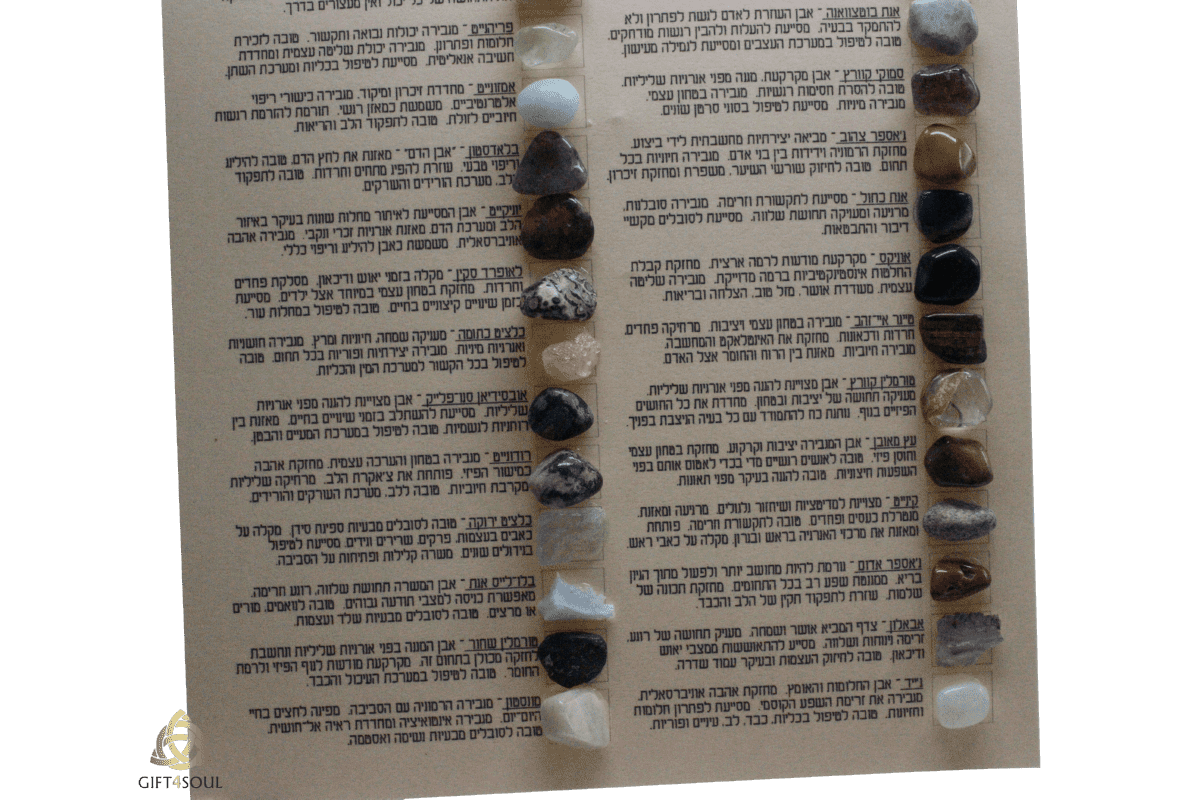 אגת בוטצוואנה - אבן העוזרת לאדם לגשת לפתרון ולא
להתמקד בבעיה. מסייעת להעלות ולהבין רגשות מודחקים.
טובה לטיפול במערכת העצבים ומסייעת לגמילה מעישון.
סמוקי קוורץ - אבן מקרקעת. מגנה מפני אנרגיות שליליות.
טובה להסרת חסימות רגשיות. מגבירה בטחון עצמי.
מגבירה מיניות. מסייעת לטיפול בסוגי סרטן שונים.
ג'אספר צהוב - מביאה יצירתיות מחשבתית לידי ביצוע.
מחזקת הרמוניה וידידות בין בני אדם. מגבירה חיוניות בכל
תחום. טובה לחיזוק שורשי השיער, משפרת ומחזקת זיכרון.
אגת כחול - מסייעת לתקשורת וזרימה. מגבירה סובלנות,
מרגיעה ומעניקה תחושת שלווה. מסייעת לסובלים מקשיי
דיבור והתבטאות.
אוניקס - מקרקעת מודעות לרמה ארצית. מחזקת קבלת
החלטות אינסטינקטיביות ברמה מדוייקת. מגבירה שליטה
עצמית, מעודדת אושר, מזל טוב, הצלחה ובריאות.
טייגר איי-זהב - מגבירה בטחון עצמי ויציבות. מרחיקה פחדים,
חרדות ודכאונות. מחזקת את האינטלאקט והמחשבה,
מגבירה חיוביות. מאזנת בין הרוח והחומר אצל האדם.
טורמלין קוורץ - אבן מצויינת להגנה מפני אנרגיות שליליות.
מעניקה תחושה של יציבות ובטחון. מחדדת את כל החושים
הפיזיים בגוף. נותנת כח להתמודד עם כל בעיה הניצבת בפניך.
עץ מאובן - אבן המגבירה יציבות וקרקוע. מחזקת בטחון עצמי
וחוסן פיזי. טובה לאנשים רגשיים מדי בכדי לאטום אותם בפני
השפעות חיצוניות. טובה להגנה בעיקר מפני תאונות.
קיניט - מצויינת למדיטציות ושיחזור גלגולים. מרגיעה ומאזנת.
מנטרלת כעסים ופחדים. טובה לתקשורת וזרימה. פותחת
ומאזנת את מרכזי האנרגיה בראש ובגרון. מקלה על כאבי ראש.
ג'אספר אדום - גורמת להיות מחושב יותר ולפעול מתוך הגיון
בריא. ממגנטת שפע רב בכל התחומים. מחזקת תכונה של
שלמות. עוזרת לתפקוד תקין של הלב והכבד.
אבאלון - צדף המביא אושר ושמחה. מעניק תחושה של רוגע,
זרימה וינוחות ושלווה. מסייע להתאוששות ממצבי יאוש
ודיכאון. טובה לחיזוק העצמות ובעיקר עמוד שדרה.
ג'ייד - אבן החלומות והאומץ. מחזקת אהבה אוניברסאלית.
מגבירה את זרימת השפע הקוסמי. מסייעת לפתרון חלומות
וחזיונות. טובה לטיפול בכליות, כבד, לב, עיניים ופוריות.
פריהנייט - מגבירה יכולות נבואה ותקשור. טובה לזכירת
חלומות ופתרונן. מגבירה יכולת שליטה עצמית ומחדדת
חשיבה אנאליטית. מסייעת לטיפול בכליות ומערכת השתן.
אמזונייט - מחדדת זיכרון ומיקוד. מגבירה כישורי ריפוי
אלטרנטיביים. משמשת כמאזן רגשי. תורמת להזרמת רגשות
חיוביים לזולת. טובה לתפקוד הלב והריאות.
בלאדסטון - "אבן הדם" - מאזנת את לחץ הדם. טובה להחליע
וריפוי טבעי. עוזרת להפיג מתחים וחרדות. טובה לתפקוד
הלב, מערכת הורידים והעורקים.
יוניקייט - אבן המסייעת לאיתור מחלות שונות בעיקר באיזור
הלב ומערכת הדם. מאזנת אנרגיות זכרי ונקבי. מגבירה אהבה
אוניברסאלית. משמשת כאבן להחליע וריפוי כללי.
לאופרד סקין - מקלה בזמני יאוש ודיכאון. מסלקת פחדים
וחרדות. מחזקת בטחון עצמי במיוחד אצל ילדים. מסייעת
בזמן שינויים קיצוניים בחיים. טובה לטיפול במחלות עור.
כלציט כתומה - מעניקה שמחה, חיוניות ומרץ. מגבירה חושניות
ואנרגיות מיניות. מגבירה יצירתיות ופוריות בכל תחום. טובה
לטיפול בכל הקשור למערכת המין והכליות.
אובסידיאן סנו-פלייק - אבן מצויינת להגנה מפני אנרגיות
שליליות. מסייעת להשתלב בזמני שינויים בחיים. מאזנת בין
רוחניות לגשמיות. טובה לטיפול במערכת המעיים והבטן.
רודונייט - מגבירה בטחון והערכה עצמית. מחזקת אהבה
במישור הפיזי. פותחת את צ'אקרת הלב. מרחיקה שליליות
מקרבת חיוביות. טובה ללב, מערכת העורקים והורידים.
כלציט ירוקה - טובה לסובלים מבעיות ספיגת סידן. מקלה על
כאבים בעצמות, פרקים, שרירים וגידים. מסייעת לטיפול
בגידולים שונים. משרה קלילות ופתיחות על הסביבה.
בלו-לייס אגת - אבן המשרה תחושת שלווה, רוגע וזרימה.
מאפשרת כניסה למצבי תודעה גבוהים. טובה לנואמים, מורים
או מרצים. טובה לסובלים מבעיות שלד ועצמות.
טורמלין שחור - אבן המגנה בפני אנרגיות שליליות ונחשבת
לחזקה מכולן בתחום זה. מקרקעת מודעות לגוף הפיזי ולרמת
החומר. טובה לטיפול במערכת העיכול והכבד.
מונסטון - מגבירה הרמוניה עם הסביבה. מפיגה לחצים בחיי
היום-יום. מגבירה אינטואיציה ומחדדת ראיה אל-חושית.
טובה לסובלים מבעיות נשימה ואסטמה.
GIFT4SOUL